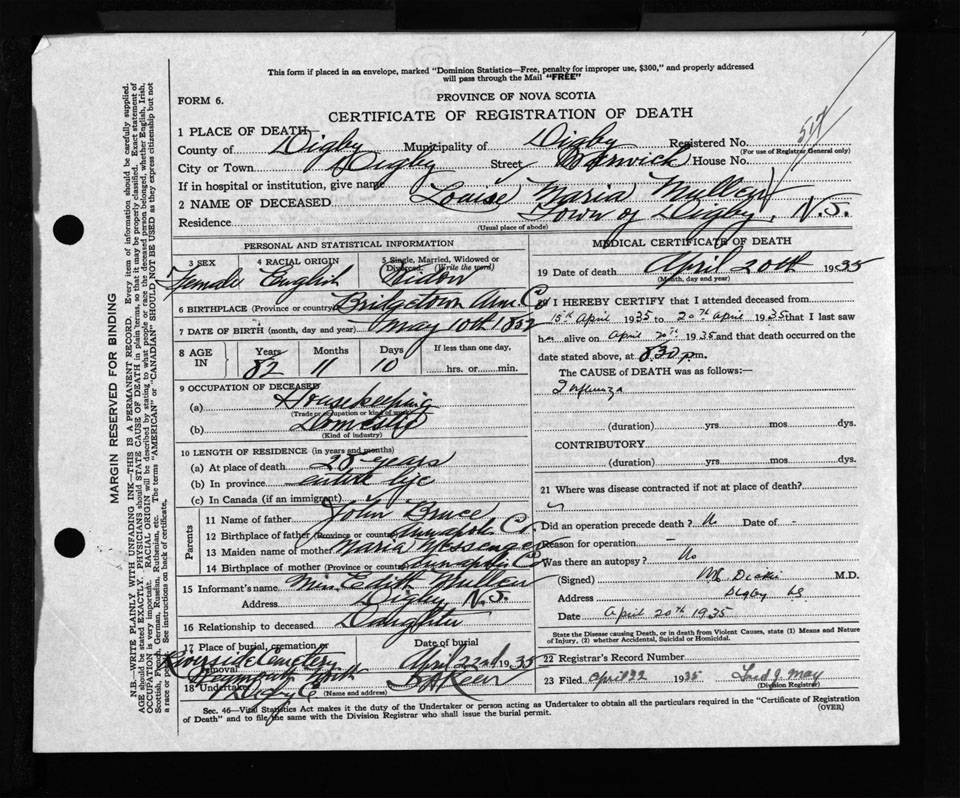 This form if placed in an envelope, marked "Dominion Statistics—Free, penalty for improper use, $300," and properly addressed
will pass through the Mail "FREE"
FORM 6.
PROVINCE OF NOVA SCOTIA
CERTIFICATE OF REGISTRATION OF DEATH
1 PLACE OF DEATH
County of Digby Municipality of Digby Registered No.
(For use of Registrar General only)
City or Town Digby Street House No.
If in hospital or institution, give name
2 NAME OF DECEASED Louise Maria Mullen
Residence Town of Digby, N.S.
(Usual place of abode)
PERSONAL AND STATISTICAL INFORMATION
3 SEX 4 RACIAL ORIGIN 5 Single, Married, Widowed or Divorced (Write the word)
Female English Widow
6 BIRTHPLACE (Province or country) Bridgetown Ann. Co
7 DATE OF BIRTH (month, day and year) May 10th 1852
8 AGE IN Years Months Days If less than one day,
82 11 10 hrs. or min.
9 OCCUPATION OF DECEASED
(a) Housekeeping
(Trade or occupation or kind of work)
(b) Domestic
(Kind of industry)
10 LENGTH OF RESIDENCE (in years and months)
(a) At place of death 28 years
(b) In province entire life
(c) In Canada (if an immigrant)
Parents
11 Name of father John Bruce
12 Birthplace of father (Province or country) Annapolis Co.
13 Maiden name of mother Maria Messenger
14 Birthplace of mother (Province or country) Annapolis Co
15 Informant's name Miss Edith Mullen
Address Digby N.S.
16 Relationship to deceased Daughter
17 Place of burial, cremation or removal Date of burial
Riverside Cemetery April 22nd 1935
18 Undertaker
(Name and address)
MEDICAL CERTIFICATE OF DEATH
19 Date of death April 20th 1935
(Month, day and year)
20 I HEREBY CERTIFY that I attended deceased from
15th April 1935 to 20th April 1935 that I last saw
her alive on April 20th 1935 and that death occurred on
date stated above, at 8.30 p.m.
The CAUSE of DEATH was as follows:—
Influenza
(duration) yrs. mos. dys.
CONTRIBUTORY
(duration) yrs. mos. dys.
21 Where was disease contracted if not at place of death?
Did an operation precede death? No Date of -
Reason for operation —
Was there an autopsy? No
(Signed) M.D.
Address Digby NS
Date April 20th 1935
State the Disease causing Death, or in death from Violent Causes, state (1) Means and Nature
of Injury, (2) whether Accidental, Suicidal or Homicidal.
22 Registrar's Record Number
23 Filed April 22 1935 Fred J. May
(Division Registrar)
Sec. 46—Vital Statistics Act makes it the duty of the Undertaker or person acting as Undertaker to obtain all the particulars required in the "Certificate of Registration
of Death" and to file the same with the Division Registrar who shall issue the burial permit.
(OVER)
MARGIN RESERVED FOR BINDING
N.B.—WRITE PLAINLY WITH UNFADING INK—THIS IS A PERMANENT RECORD. Every item of information should be carefully supplied.
AGE should be stated EXACTLY. PHYSICIANS should STATE CAUSE OF DEATH in plain terms, so that it may be properly classified. Exact statement of
OCCUPATION is very important. RACIAL ORIGIN will be described by stating to what people or race the deceased person belonged, whether English, Irish,
Scottish, French, German, Russian, Ruthenian, etc. The terms "AMERICAN" or "CANADIAN" SHOULD NOT BE USED as they express citizenship but not
a race or people. See instructions on back of certificate.